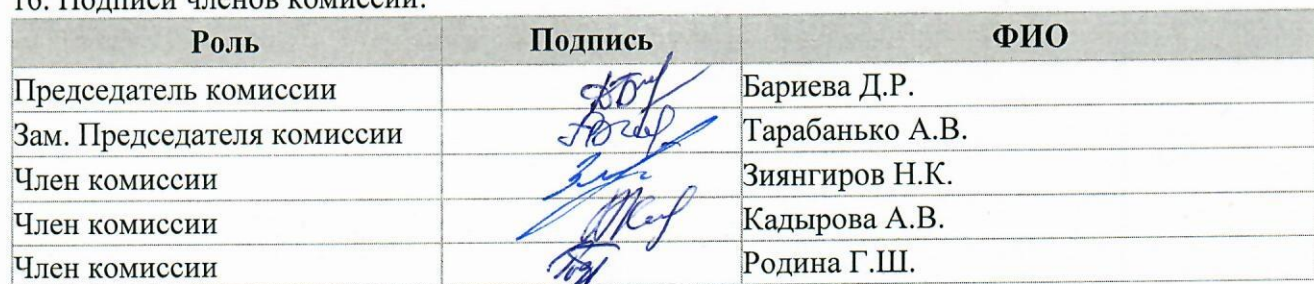 16. Подписи членов комиссии:
Роль Подпись ФИО
Председатель комиссии Бариева Д.Р.
Зам. Председателя комиссии Тарабанько А.В.
Член комиссии Зиянгиров Н.К.
Член комиссии Кадырова А.В.
Член комиссии Родина Г.Ш.